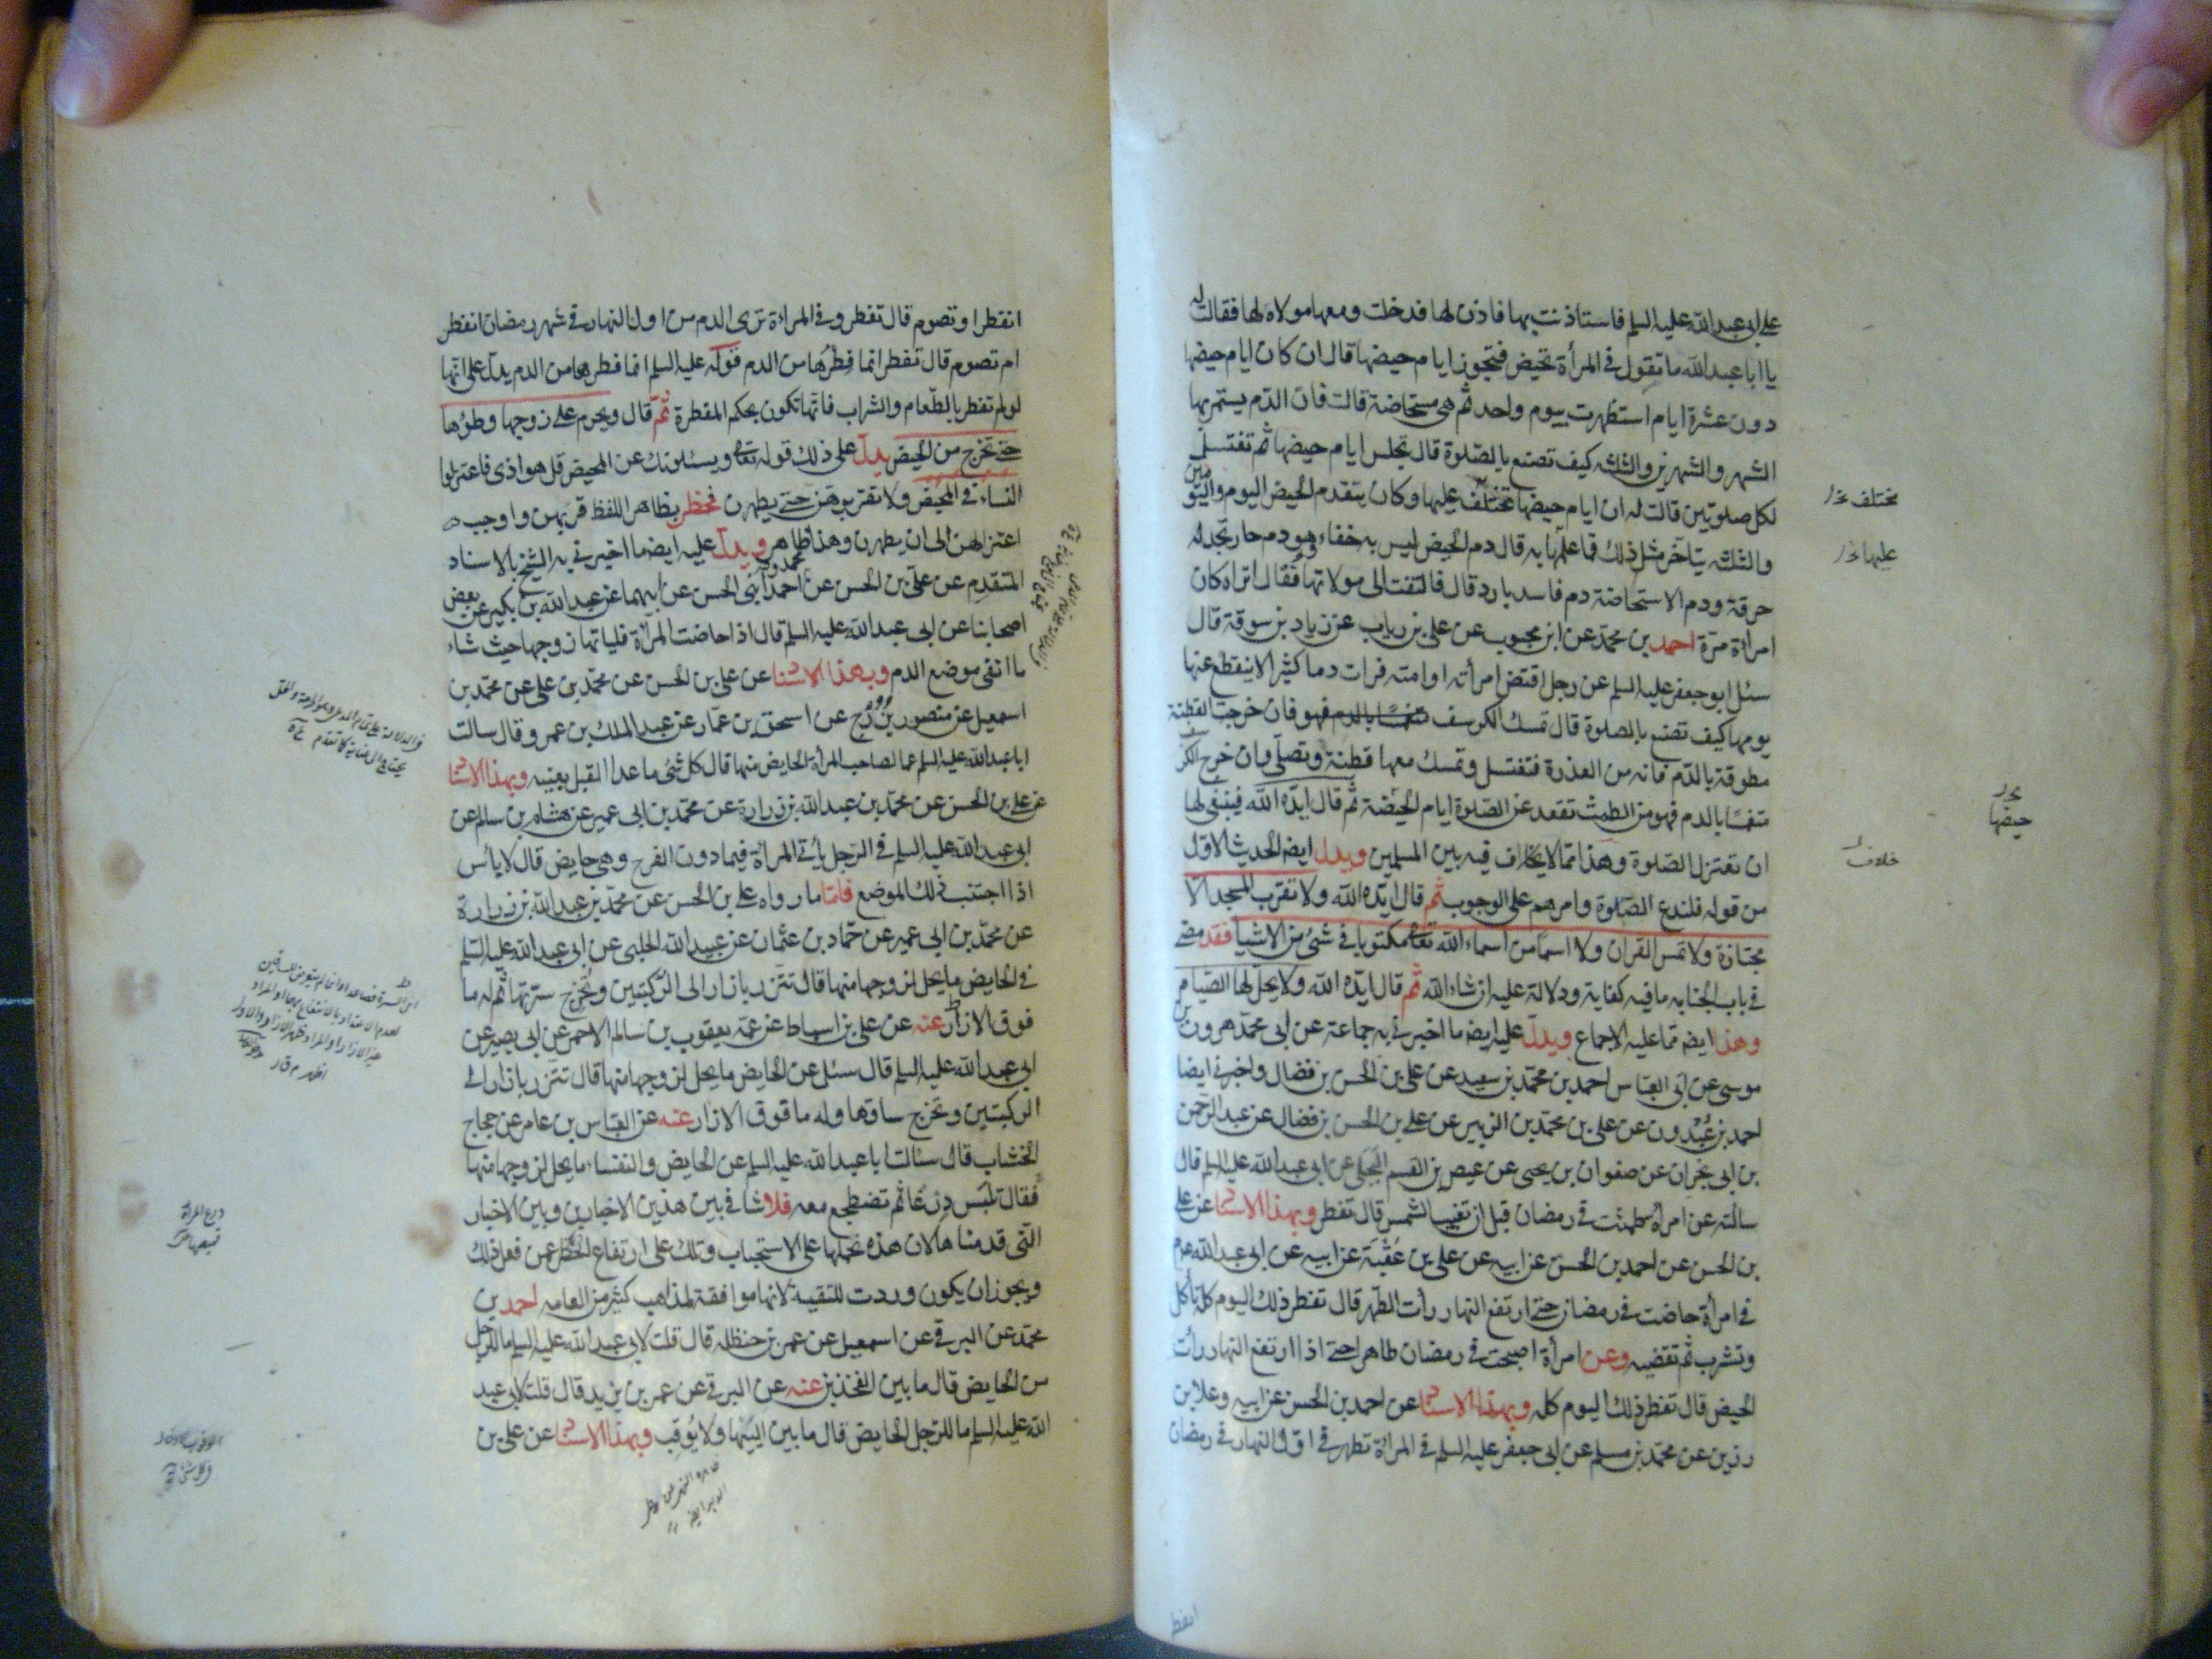 على ابى عبد الله عليه السلم فاستاذنت بها فاذن لها فدخلت ومعها مولاه لها فقالت له
يا ابا عبد الله ما تقول فى المرأة تحيض فتجوز ايام حيضها قال ان كان ايام حيضها
دون عشرة ايام استظهرت بيوم واحد ثم هى مستحاضة قالت فان الدّم يستمر بها
الشهر والشهرين والثلثه كيف تصنع بالصّلوة قال تجلس ايام حيضها ثم تغتسل
لكل صلوتين قالت له ان ايام حيضها تختلف عليها وكان يتقدم الحيض اليوم واليومين
والثلثه ويتاخر مثل ذلك فما علمها به قال دم الحيض ليس به خفاء وهو دم حار تجد له
حرقة ودم الاستحاضة دم فاسد بارد قال فالتفت الى مولاتها فقال اتراه كان
امراة مرّة احمد بن محمّد عن ابن محبوب عن على بن رياب عن زياد بن سوقة قال
سئل ابو جعفر عليه السلم عن رجل اقتض امرأته او امته فرات دما كثيرا لا ينقطع عنها
يومها كيف تصنع بالصلوة قال تمسك الكرسف فان خرجت القطنة
مطوقة بالدّم فانه من العذرة فتغتسل وتمسك معها قطنة وتصلّى وان خرج الكرسف
منغمسًا بالدم فهو من الطمث تقعد عن الصّلوة ايام الحيضة ثم قال ايّده الله فينبغى لها
ان تعتزل الصّلوة وهذا ممّا لا خلاف فيه بين المسلمين ويدل ايضه الحديث الاول
من قوله فلتدع الصّلوة وامرهم على الوجوب ثم قال ايّده الله ولا تقرب المسجد الّا
مجتازة ولا تمس القران ولا اسماً من اسماء الله تعالى مكتوبا فى شىء من الاشيا فقد مضى
فى باب الجنابه ما فيه كفاية ودلالة عليه ان شاء الله ثم قال ايّده الله ولا يحلّ لها الصّيام
وهذا ايضه ممّا عليه الاجماع ويدلّ عليه ايضه ما اخبرنى به جماعة عن ابى محمّد هرون بن
موسى عن ابى العبّاس احمد بن محمّد بن سعيد عن على بن الحسن بن فضال واخبرنى ايضا
احمد بن عُبْدون عن على بن محمّد بن الزبير عن على بن الحسن بن فضال عن عبد الرّحمن
بن ابى نجران عن صفوان بن يحيى عن عيص بن القسم البجلى عن ابى عبد الله عليه السلم قال
سالته عن امرأة طمثت فى رمضان قبل ان تغيب الشمس قال تفطر وبهذا الاسنا عن على
بن الحسن عن احمد بن الحسن عن ابيه عن على بن عُقْبَة عن ابيه عن ابى عبد الله عم
فى امرأة حاضت فى رمضان حتى ارتفع النهار رأت الطّهر قال تفطر ذلك اليوم كلّه تأكل
وتشرب ثم تقضيه وعن امرأة اصبحت فى رمضان طاهرا حتى اذا ارتفع النهار رأت
الحيض قال تفطر ذلك اليوم كله وبهذا الاسنا عن احمد بن الحسن عن ابيه وعلا بن
رزين عن محمّد بن مسلم عن ابى جعفر عليه السلم فى المرأة تطهر فى اوّل النهار فى رمضان
مختلف
عليها
حيضها
خلاف
اتفطر
اتفطر او تصوم قال تفطر وفى المراءة ترى الدم من اول النهار فى شهر رمضان اتفطر
ام تصوم قال تفطر انما فِطْرُها من الدم قوله عليه السلم انما فطرها من الدم يدلّ على انّها
لو لم تفطر بالطّعام والشراب فانّها تكون بحكم المفطرة ثمّ قال ويحرم على زوجها وطؤها
حتى تخرج من الحيض يدلّ على ذلك قوله تعالى ويسئلونك عن المحيض قل هو اذى فاعتزلوا
النساء فى المحيض ولا تقربوهنّ حتى يطهرن فحظر بظاهر اللفظ قربهن واوجب
اعتزالهن الى ان يطهرن وهذا ظاهر ويدلّ عليه ايضه ما اخبرنى به الشيخ بالاسناد
المتقدم عن علىّ بن الحسن عن محمد واحمد ابنى الحسن عن ابيهما عن عبد الله بن بكير عن بعض
اصحابنا عن ابى عبد الله عليه السلم قال اذا حاضت المرأة فلياتها زوجها حيث شاء
ما اتقى موضع الدم وبهذا الاسنا عن على بن الحسن عن محمّد بن على عن محمّد بن
اسمعيل عن منصور بن يونس عن اسحق بن عمّار عن عبد الملك بن عمرو قال سالت
ابا عبد الله عليه السلم عما لصاحب المرأة الحايض منها قال كل شىء ما عدا القبل بعينه وبهذا الاسنا
عن على بن الحسن عن محمّد بن عبد الله بن زرارة عن محمّد بن ابى عمير عن هشام بن سالم عن
ابى عبد الله عليه السلم فى الرّجل يأتى المرأة فيما دون الفرج وهى حايض قال لا بأس
اذا اجتنب ذلك الموضع فامّا ما رواه على بن الحسن عن محمّد بن عبد الله بن زرارة
عن محمّد بن ابى عمير عن حمّاد بن عثمان عن عبيد الله الحلبى عن ابى عبد الله عليه السّلم
فى الحايض ما يحل لزوجها منها قال تتّزر بازار الى الرّكبتين وتُخرج سرّتها ثم له ما
فوق الازار عنه عن على بن اسباط عن عمّه يعقوب بن سالم الاحمر عن ابى بصير عن
ابى عبد الله عليه السلم قال سئل عن الحايض ما يحل لزوجها منها قال تتزر بازار الى
الركبتين وتخرج ساقها وله ما فوق الازار عنه عن العبّاس بن عامر عن حجاج
الخشاب قال سئالت ابا عبد الله عليه السلم عن الحايض والنفساء ما يحل لزوجها منها
فقال تلبس درْعا ثم تضطجع معه فلا تنافى بين هذين الاخبارين وبين الاخبار
التى قدمناها لان هذه نحملها على الاستحباب وتلك على ارتفاع الحظر عن فعل ذلك
ويجوز ان يكون وردت للتقية لانها موافقة لمذاهب كثير من العامه احمد بن
محمّد عن البرقى عن اسمعيل عن عمر بن حنظله قال قلت لابى عبد الله عليه السلم ما للرجل
من الحايض قال ما بين الفخذين عنه عن البرقى عن عمر بن يزيد قال قلت لابى عبد
الله عليه السلم ما للرّجل الحايض قال ما بين اليتيها ولا يُوقِب وبهذا الاسنا عن على بن
درع المرأة
قميصها